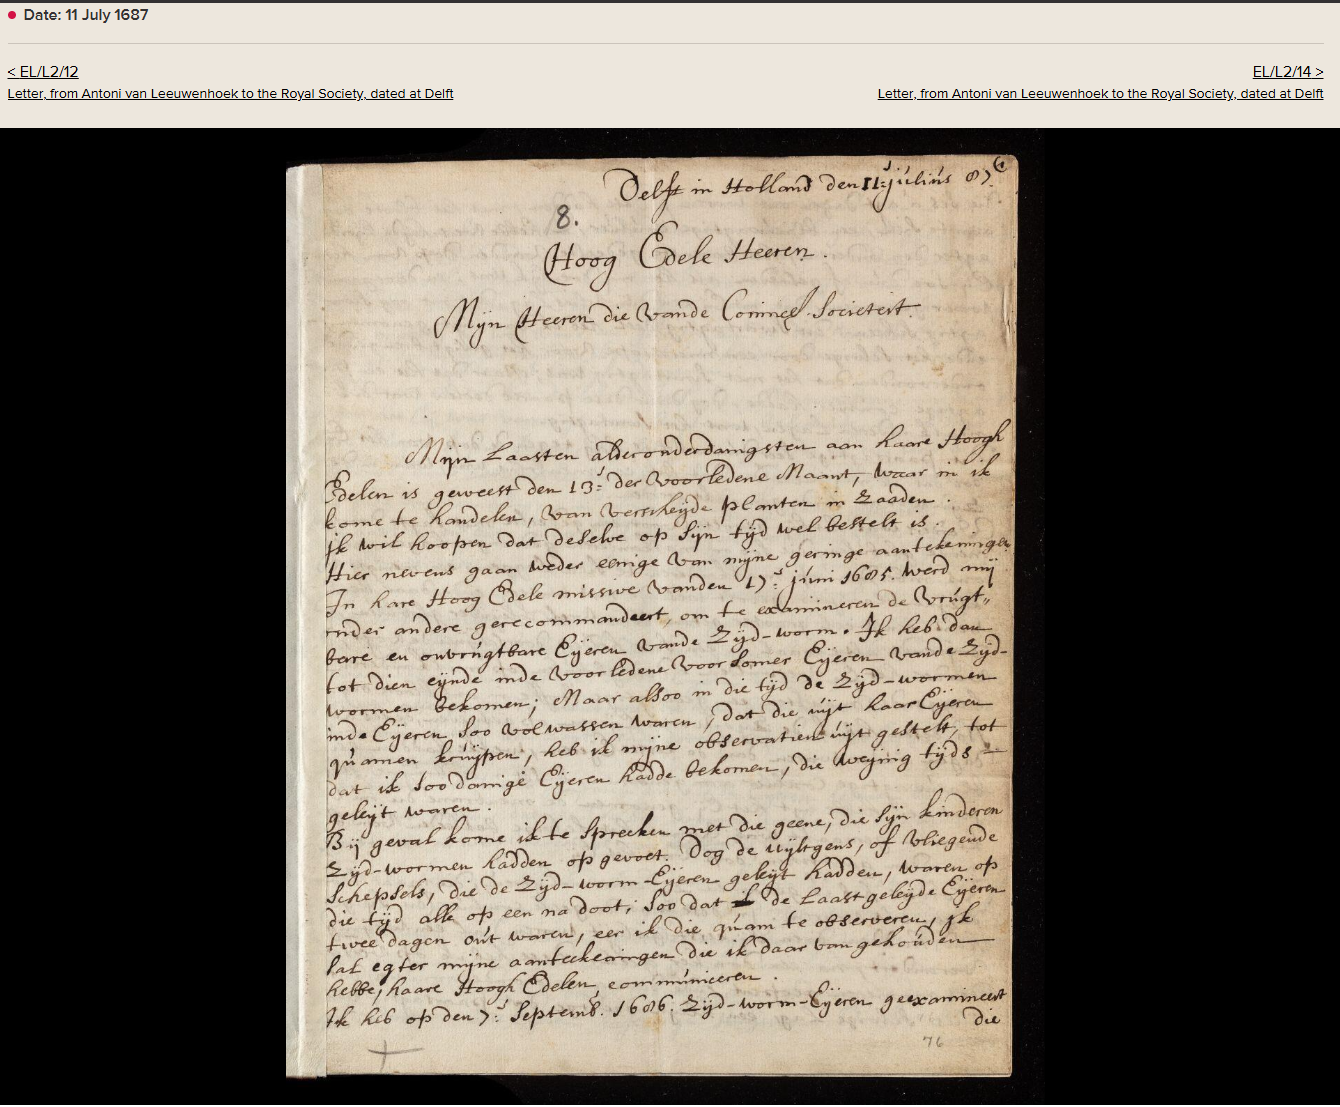 Date: 11 July 1687
< EL/L2/12
EL/L2/14 >
Letter, from Antoni van Leeuwenhoek to the Royal Society, dated at Delft
Letter, from Antoni van Leeuwenhoek to the Royal Society, dated at Delft
Delft in Holland den 11:e julius 87.
8.
Hoog Edele Heeren.
Mijn Heeren die vande Coninckl. Societeit.
Mijn Laasten alderonderdanigsten aan haare Hoogh
Edelen is geweest den 13:e der voorledene Maant, waar in ik
kome te handelen, van verscheyde planten in Zaaden.
jk wil hoopen dat deselve op sijn tijd wel bestelt is.
Hier nevens gaan weder eenige van mijne geringe aantekeningen
In hare Hoog Edele missive vanden 17:e juni 1685. werd mij
onder andere gerecommandeert, om te examineren de vrugt„
bare en onvrugtbare Eijeren vande Zijd-worm. Ik heb dan
tot dien eijnde inde voorledene voor somer Eijeren vande Zijd-
wormen bekomen; Maar alsoo in die tijd de Zijd-wormen
inde Eijeren soo volwassen waren, dat die uijt haar Eijeren
quamen kruijpen, heb ik mijne observatien uijt gestelt, tot
dat ik soodanige Eijeren hadde bekomen, die weijnig tijds
geleijt waren.
Bij geval kome ik te spreeken met die geene, die sijn kinderen
Zijd-wormen hadden op gevoet. Dog de uijltgens, of vliegende
schepsels, die de Zijd-worm-Eijeren geleijt hadden, waren op
die tijd alle op een na doot; soo dat de laast geleijde Eijeren
twee dagen out waren, eer ik die quam te observeren, jk
sal egter mijne aantekeningen die ik daar van gehouden
hebbe, haare Hoogh Edelen, communiceren.
Ik heb op den 7:e Septemb. 1686. Zijd-worm-Eijeren geexamineert
die
76